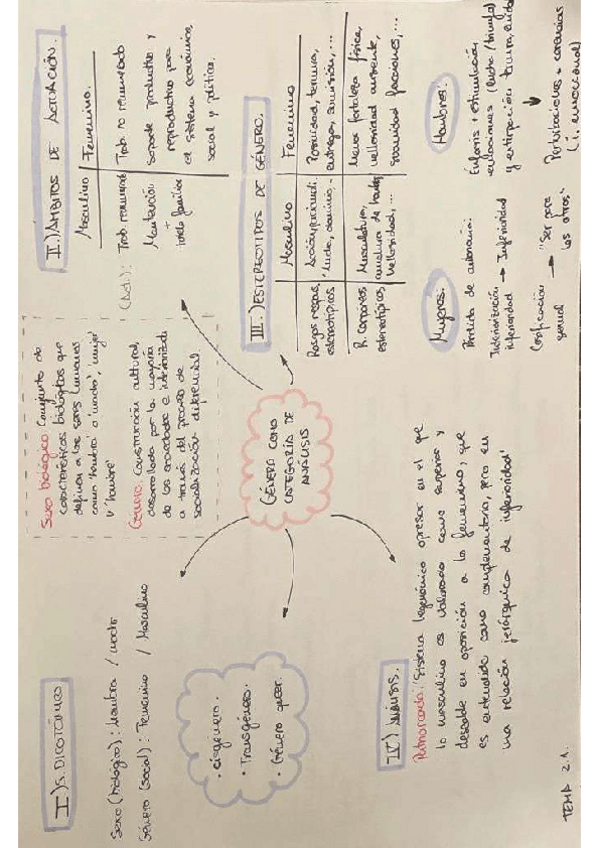 I) S. DICOTÓMICO
Sexo (biológico): Hembra / macho
Género (social): Femenino / Masculino
· cisgénero.
· Transgénero.
· Género queer.
Sexo biológico: Conjunto de
características biológicas que
definen a los seres humanos
como 'hembra' o 'macho', 'mujer'
u 'hombre'
Género: Construcción cultural,
desarrollada por la mayoría
de las sociedades e interiorizada
a través del proceso de
socialización diferencial.
GÉNERO COMO
CATEGORÍA DE
ANÁLISIS
II.) ÁMBITOS DE ACTUACIÓN.
Masculino Femenino.
Trab. remunerado Trab. no remunerado
Mantención Soporte productivo y
familia reproductivo para
el sistema económico,
social y político.
III.) ESTEREOTIPOS DE GÉNERO.
Masculino Femenino
Rasgos
estereotípicos lucha, dominio. Pasividad, ternura,
entrega, sumisión, ...
R. corpóreos
estereotípicos Musculatura,
vellosidad, ... Menos fortaleza física,
vellosidad ausente,
suavidad facciones, ...
IV) ANÁLISIS.
Patriarcado: Sistema hegemónico opresor en el que
lo masculino es valorado como superior y
deseable en oposición a lo femenino, que
es entendido como complementario, pero en
una relación jerárquica de inferioridad'
Mujeres:
Pérdida de autonomía:
Inferiorización → Inferioridad
inferioridad
Cosificación → "Ser para
sexual los otros"
Hombres:
(lucha / triunfo)
↓
+ carencias
(i. emocional)
TEMA 2.1.